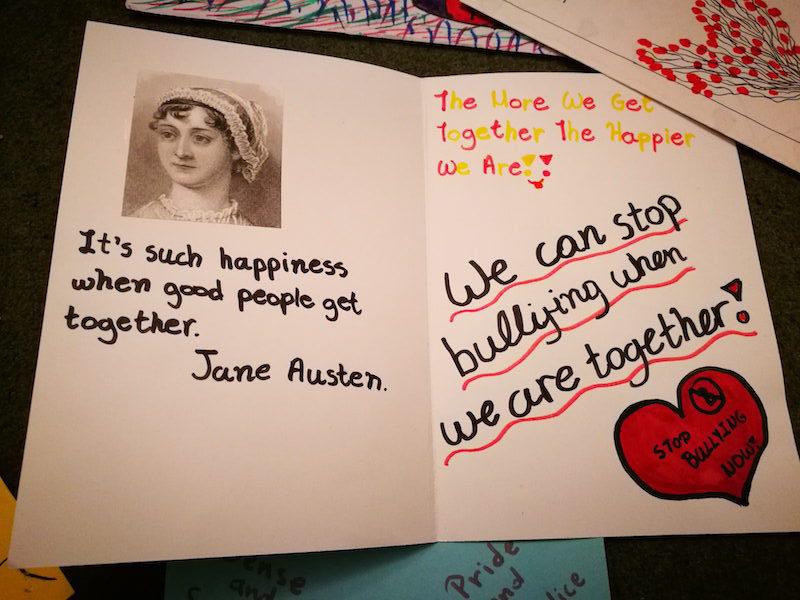 It's such happiness
when good people get
together.
Jane Austen.
The More We Get
Together The Happier
We Are!!
We can stop
bullying when
we are together!
STOP
BULLYING
NOW!
Sense
and
Pride
and